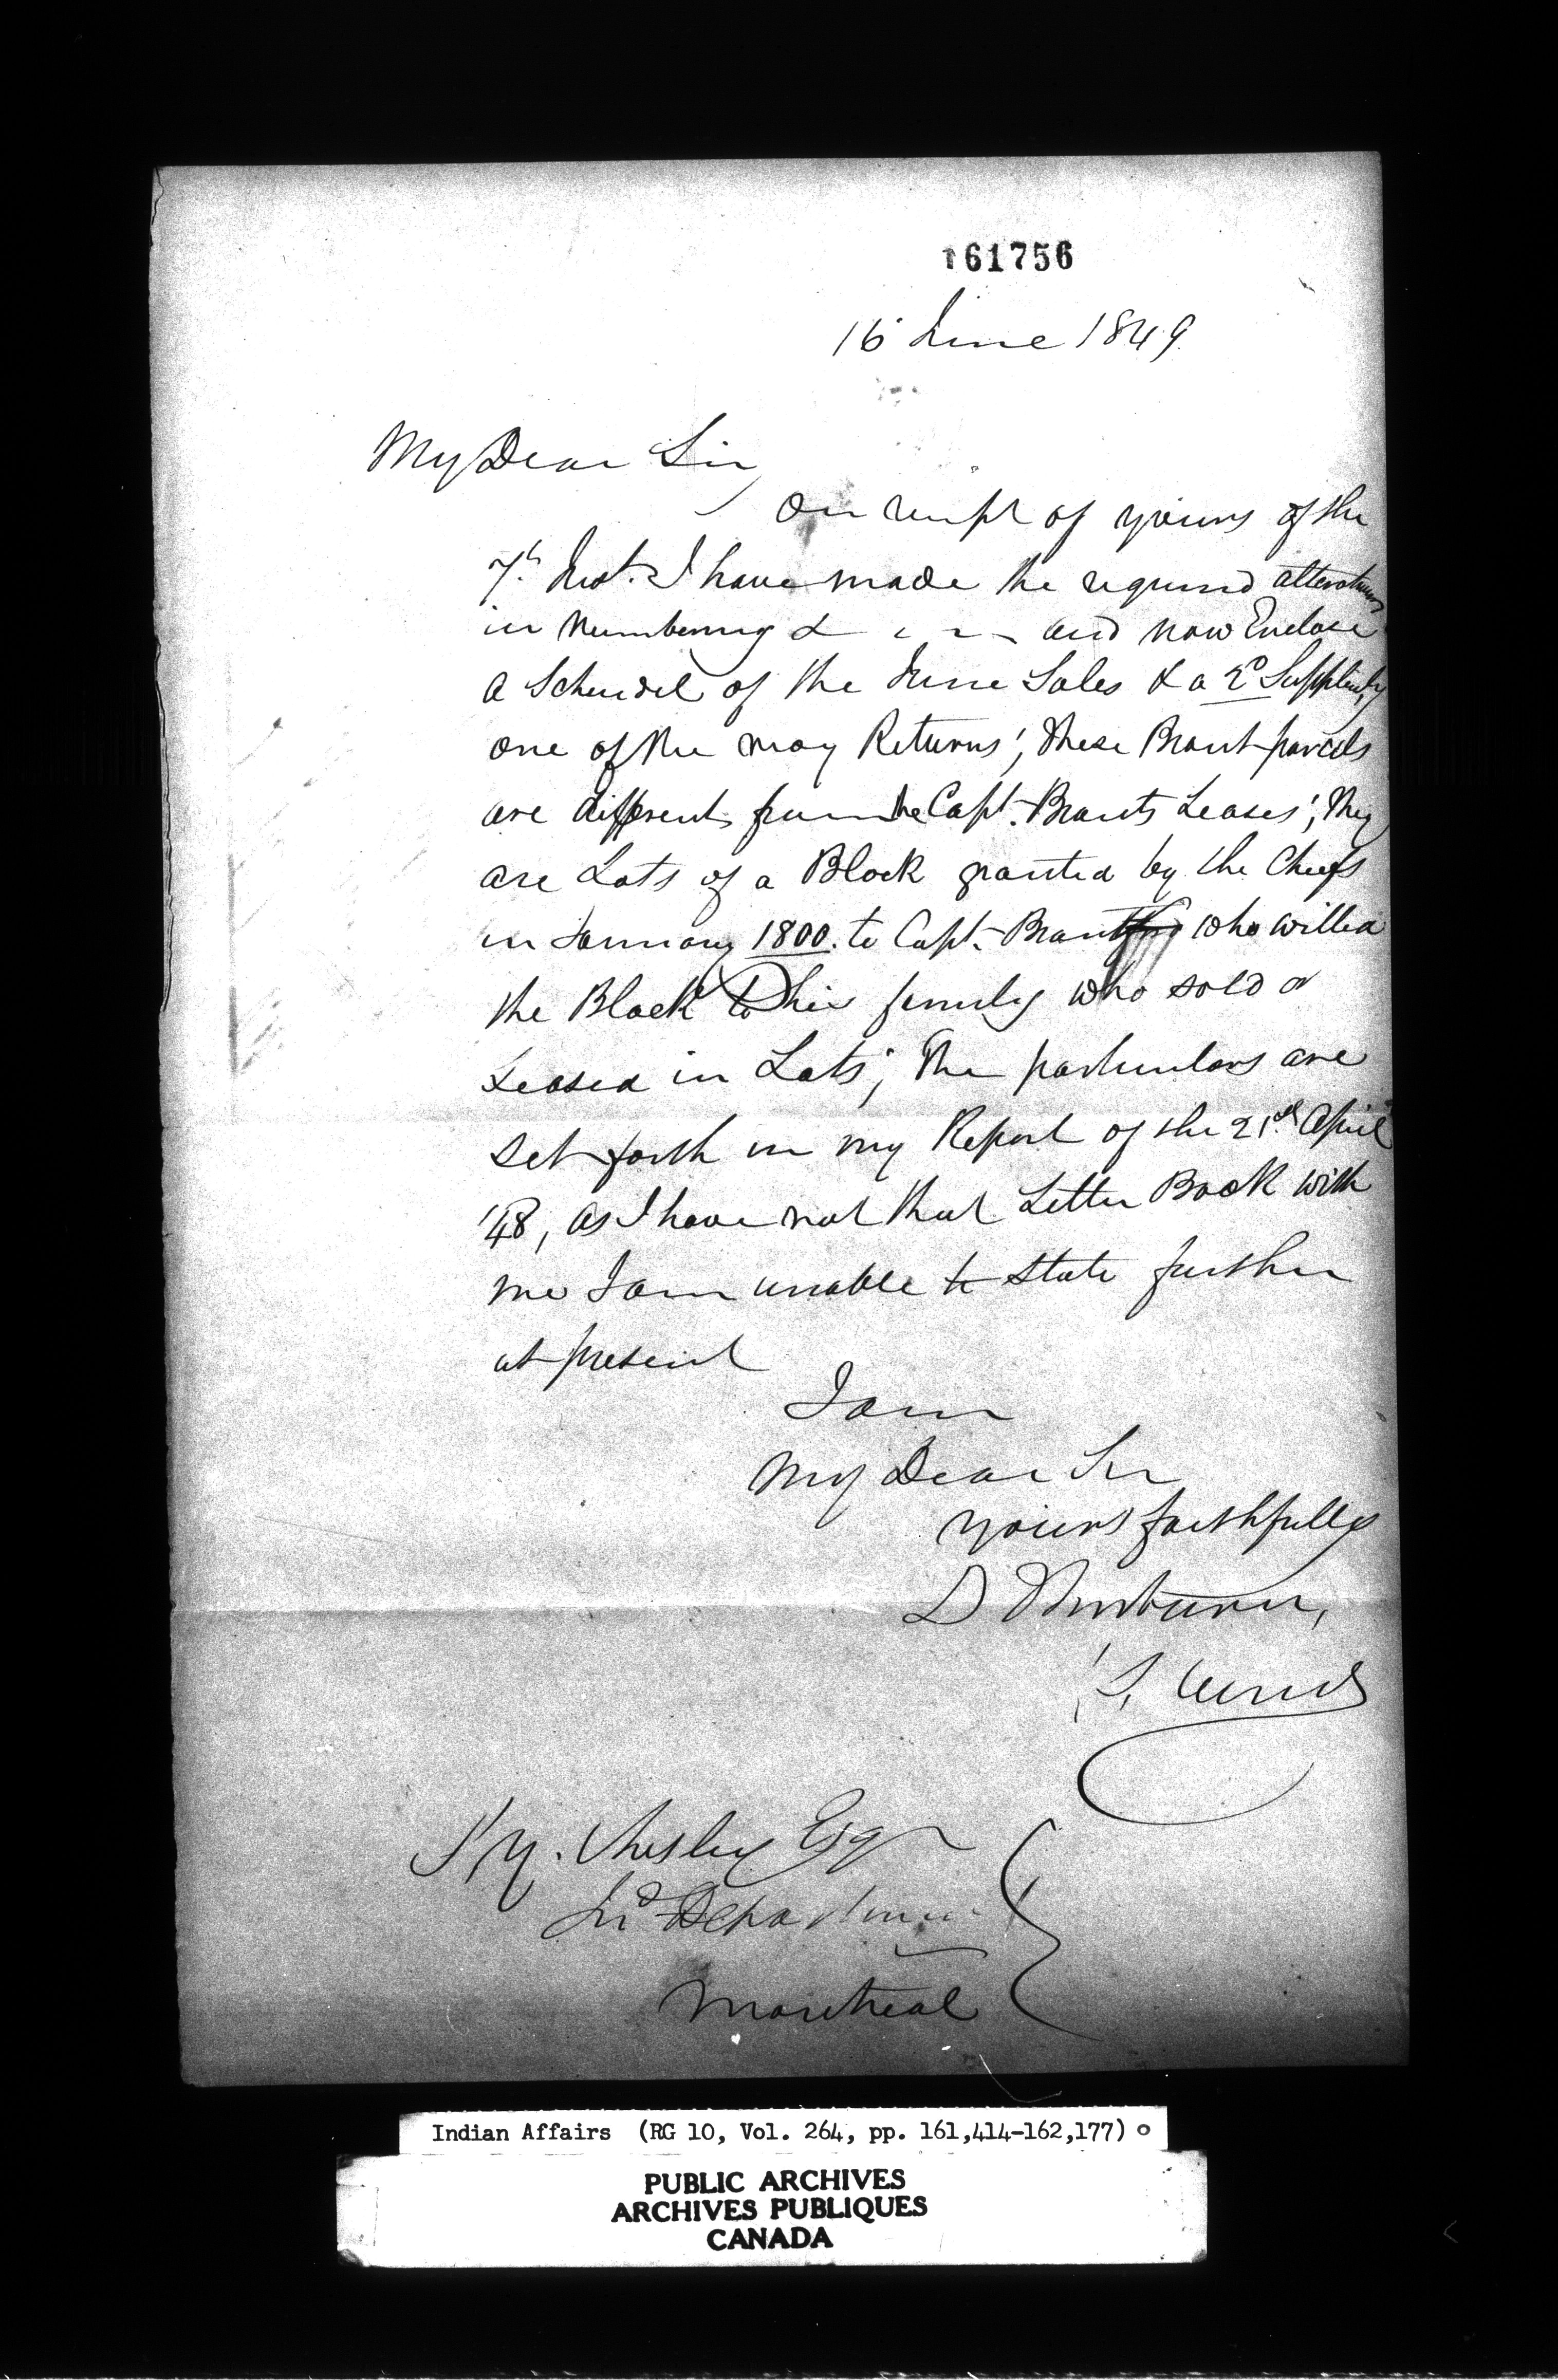 161756
16 June 1849.
My Dear Sir
On receipt of yours of the
7th Inst. I have made the required alterations
in Numbering & and now Enclose
a Schedul of the June Sales & a 2d Supplinty
one of the May Returns; these Brant parcels
are different from the Capt. Brants Leases; they
are Lots of a Block granted by the Chiefs
in January 1800. to Capt. Brant who willed
the Block to his family who sold or
Leased in Lots; The particulars are
set forth in my Report of the 21st April
'48, as I have not that Letter Book with
me I am unable to state further
at present
I am
My Dear Sir
yours faithfully
D Thorburn,
S. Y. Chesley Esqr
Ind Department
Montreal
Indian Affairs (RG 10, Vol. 264, pp. 161,414-162,177)
PUBLIC ARCHIVES
ARCHIVES PUBLIQUES
CANADA